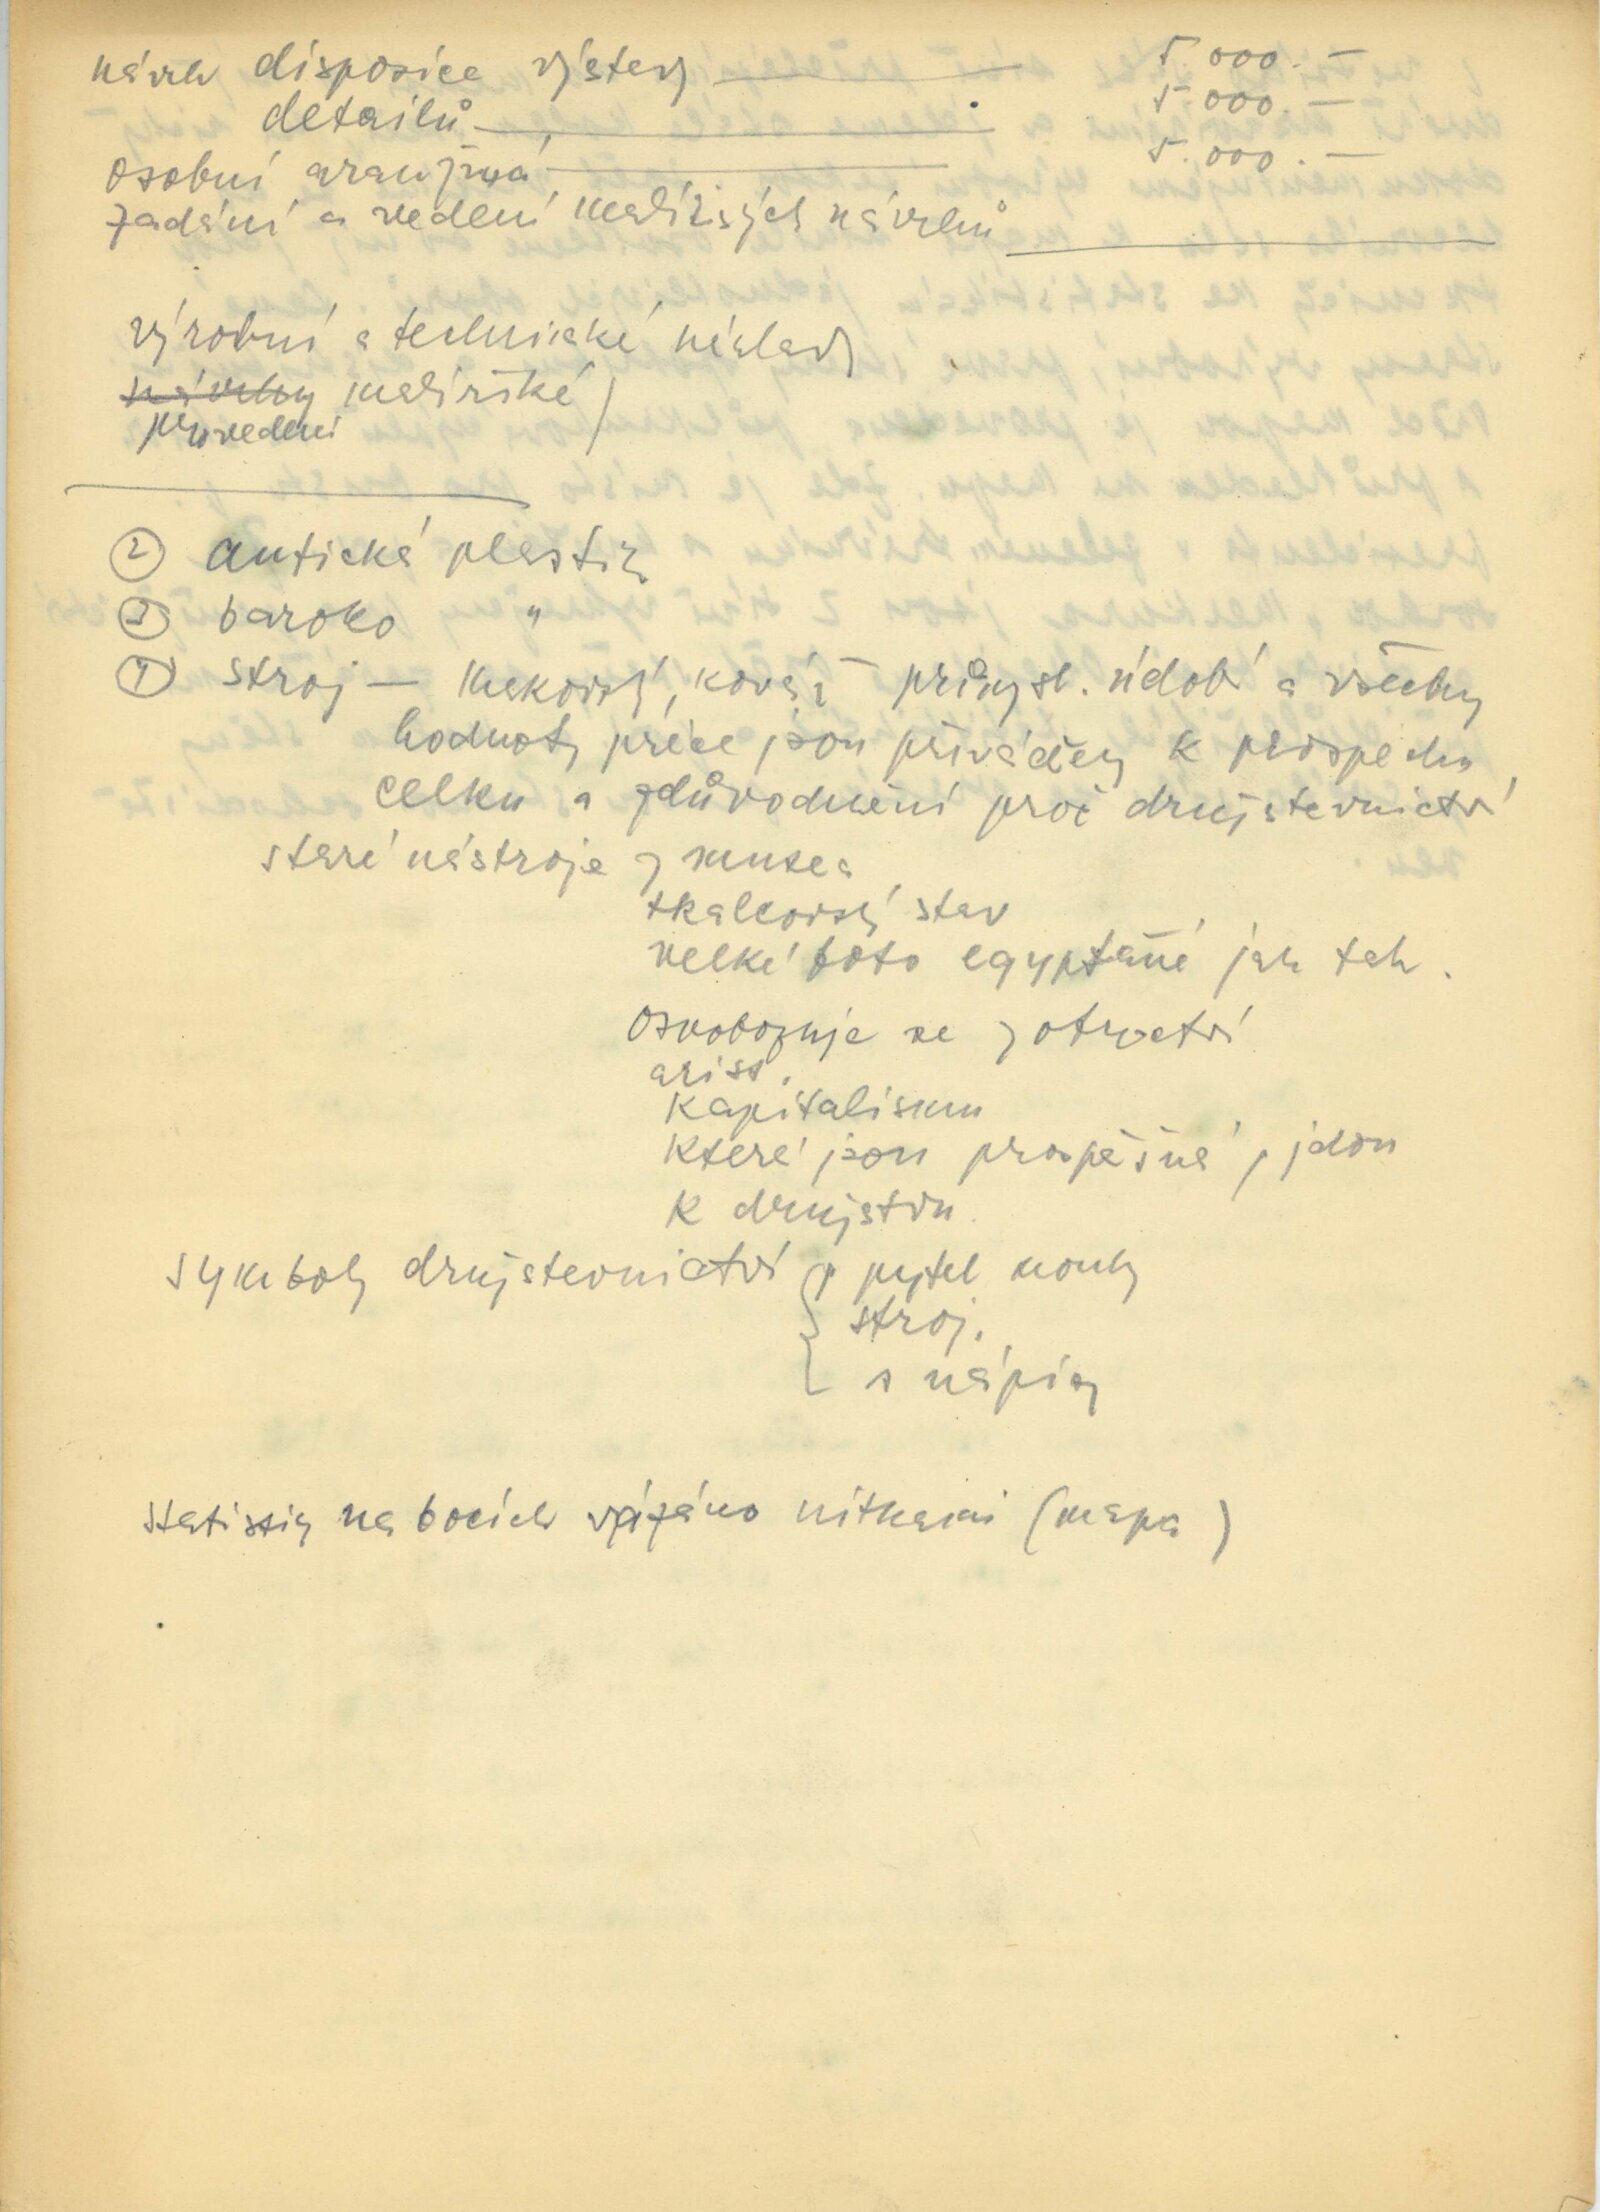 návrh disposice výstavy ——— 5.000.—
detailů ——— 5.000.—
osobní aranžmá ——— 5.000.—
zadání a vedení malířských návrhů ———
výrobní a technické náklady
návrhy malířské
provedení
② antická plastika
③ baroko "
① stroj — kovář průmysl. údobí a všechny
hodnoty práce jsou přiváděny k prospěchu
celku a zdůvodnění proč družstevnictví
staré nástroje z musea
tkalcovský stav
velké foto egyptané jak tah.
osvobozuje se z otroctví
arist.
kapitalismu
které jsou prospěšné, jdou
k družstvu
symboly družstevnictví pytel mouky
stroj.
s nápisy
statistiky na bocích vázáno nitkami (mapa)